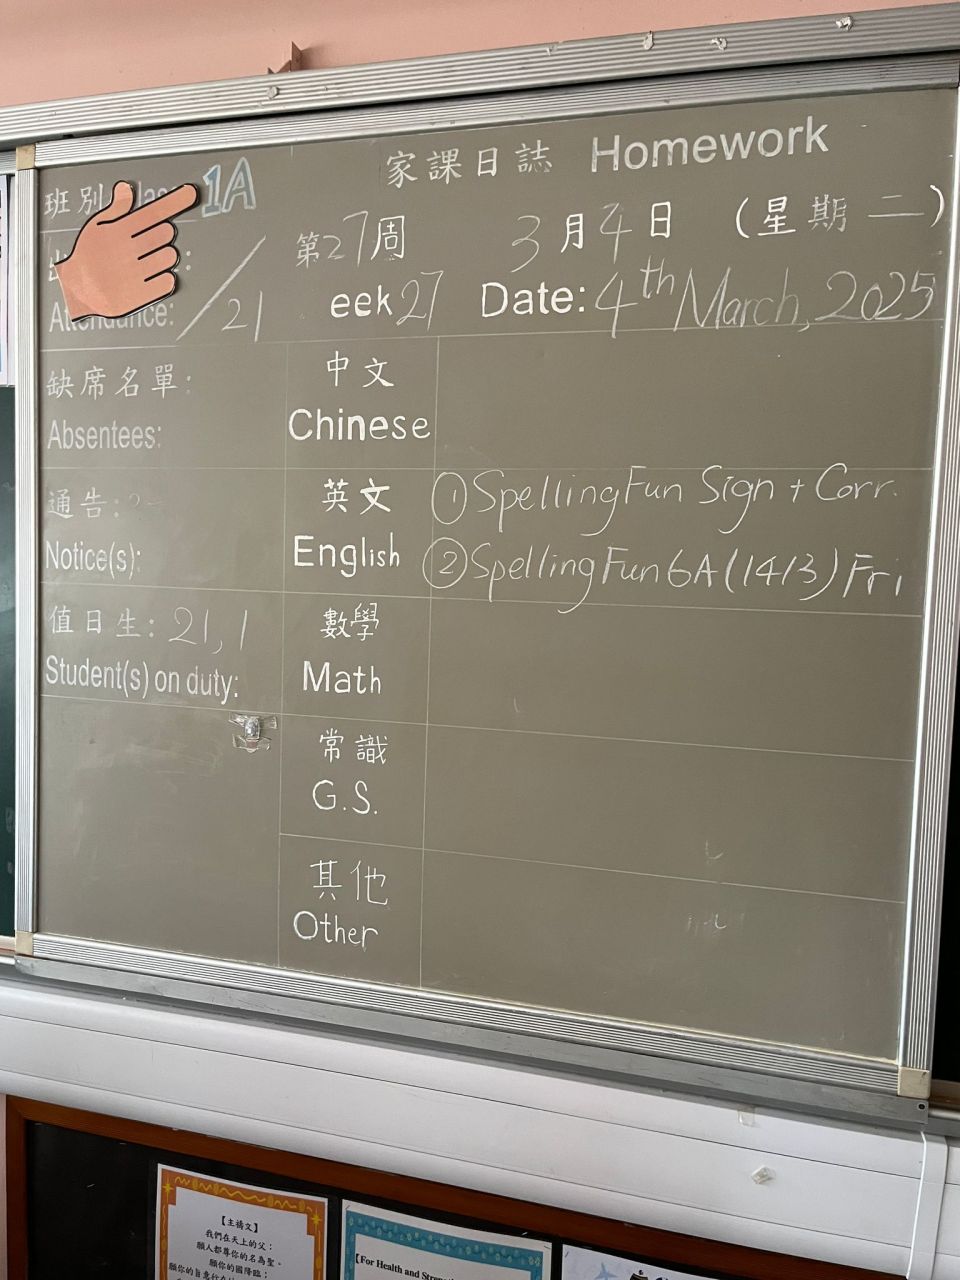 家課日誌 Homework
班別 Class 1A
第27周
3月4日 (星期二)
Attendance: /21
eek 27
Date: 4th March, 2025
缺席名單:
Absentees:
中文
Chinese
通告:
Notice(s):
英文
English
① Spelling Fun Sign + Corr.
② Spelling Fun 6A (14/3) Fri
值日生: 21, 1
Student(s) on duty:
數學
Math
常識
G.S.
其他
Other
【主禱文】
我們在天上的父:
願人都尊你的名為聖。
願你的國降臨;
【For Health and